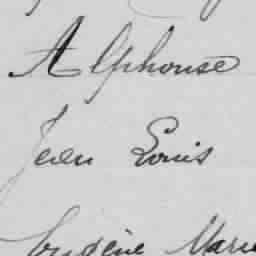 Alphonse
Jean Louis
Eugène Marie